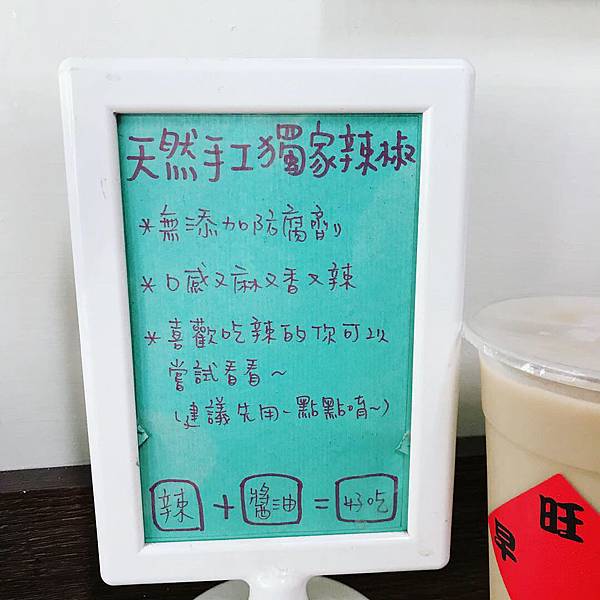 天然手工獨家辣椒
*無添加防腐劑
*口感又麻又香又辣
*喜歡吃辣的你可以
嘗試看看~
(建議先用一點點唷~)
辣 + 醬油 = 好吃
旺